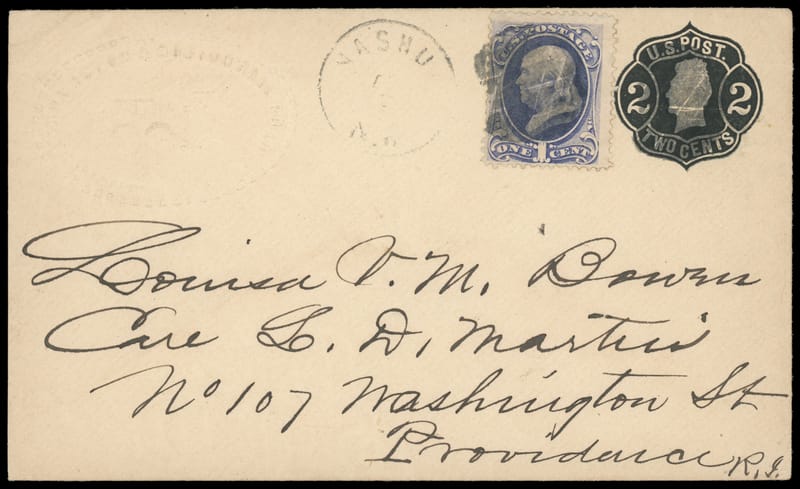 NASHU
U.S. POSTAGE
ONE 1 CENT
U.S. POST.
2 2
TWO CENTS
Louisa V. M. Bowen
Care L. D. Martin
No 107 Washington St
Providence R.I.